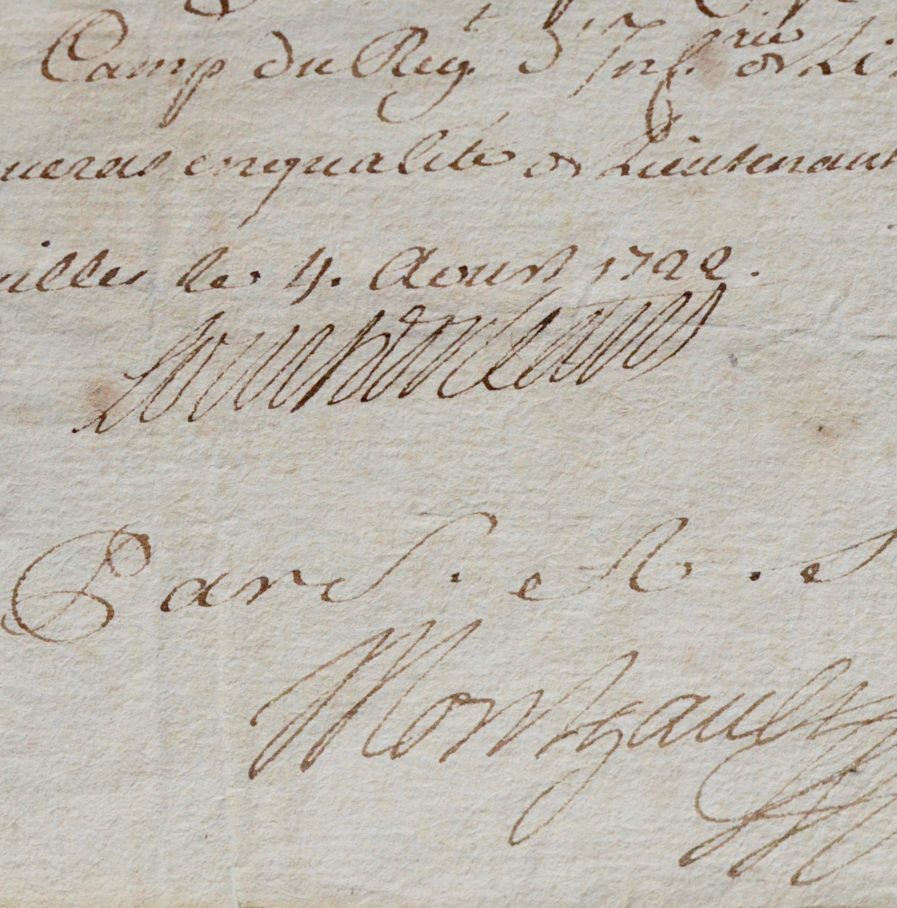 Camp du Reg.t d'Inf.rie de Li
queras en qualité de Lieutenant
illes le 4. Aoust 1722.
Louis d'orleans
Par S. A. S
Montgault